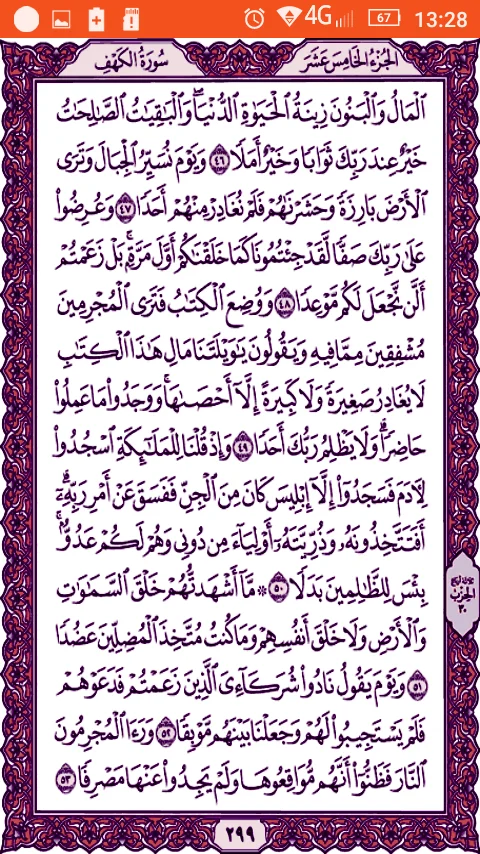 4G 67 13:28
سُورَةُ الكَهْفِ الجُزْءُ الخَامِسَ عَشَرَ
ٱلْمَالُ وَٱلْبَنُونَ زِينَةُ ٱلْحَيَوٰةِ ٱلدُّنْيَاۖ وَٱلْبَٰقِيَٰتُ ٱلصَّٰلِحَٰتُ
خَيْرٌ عِندَ رَبِّكَ ثَوَابًا وَخَيْرٌ أَمَلًا ٤٦ وَيَوْمَ نُسَيِّرُ ٱلْجِبَالَ وَتَرَى
ٱلْأَرْضَ بَارِزَةً وَحَشَرْنَٰهُمْ فَلَمْ نُغَادِرْ مِنْهُمْ أَحَدًا ٤٧ وَعُرِضُوا۟
عَلَىٰ رَبِّكَ صَفًّا لَّقَدْ جِئْتُمُونَا كَمَا خَلَقْنَٰكُمْ أَوَّلَ مَرَّةٍۭۚ بَلْ زَعَمْتُمْ
أَلَّن نَّجْعَلَ لَكُم مَّوْعِدًا ٤٨ وَوُضِعَ ٱلْكِتَٰبُ فَتَرَى ٱلْمُجْرِمِينَ
مُشْفِقِينَ مِمَّا فِيهِ وَيَقُولُونَ يَٰوَيْلَتَنَا مَالِ هَٰذَا ٱلْكِتَٰبِ
لَا يُغَادِرُ صَغِيرَةً وَلَا كَبِيرَةً إِلَّآ أَحْصَىٰهَاۚ وَوَجَدُوا۟ مَا عَمِلُوا۟
حَاضِرًاۗ وَلَا يَظْلِمُ رَبُّكَ أَحَدًا ٤٩ وَإِذْ قُلْنَا لِلْمَلَٰٓئِكَةِ ٱسْجُدُوا۟
لِءَادَمَ فَسَجَدُوٓا۟ إِلَّآ إِبْلِيسَ كَانَ مِنَ ٱلْجِنِّ فَفَسَقَ عَنْ أَمْرِ رَبِّهِۦٓۗ
أَفَتَتَّخِذُونَهُۥ وَذُرِّيَّتَهُۥٓ أَوْلِيَآءَ مِن دُونِى وَهُمْ لَكُمْ عَدُوٌّۢۚ
بِئْسَ لِلظَّٰلِمِينَ بَدَلًا ٥٠ ۞ مَّآ أَشْهَدتُّهُمْ خَلْقَ ٱلسَّمَٰوَٰتِ
وَٱلْأَرْضِ وَلَا خَلْقَ أَنفُسِهِمْ وَمَا كُنتُ مُتَّخِذَ ٱلْمُضِلِّينَ عَضُدًا
٥١ وَيَوْمَ يَقُولُ نَادُوا۟ شُرَكَآءِىَ ٱلَّذِينَ زَعَمْتُمْ فَدَعَوْهُمْ
فَلَمْ يَسْتَجِيبُوا۟ لَهُمْ وَجَعَلْنَا بَيْنَهُم مَّوْبِقًا ٥٢ وَرَءَا ٱلْمُجْرِمُونَ
ٱلنَّارَ فَظَنُّوٓا۟ أَنَّهُم مُّوَاقِعُوهَا وَلَمْ يَجِدُوا۟ عَنْهَا مَصْرِفًا ٥٣
الحِزْب
٣٠
٢٩٩